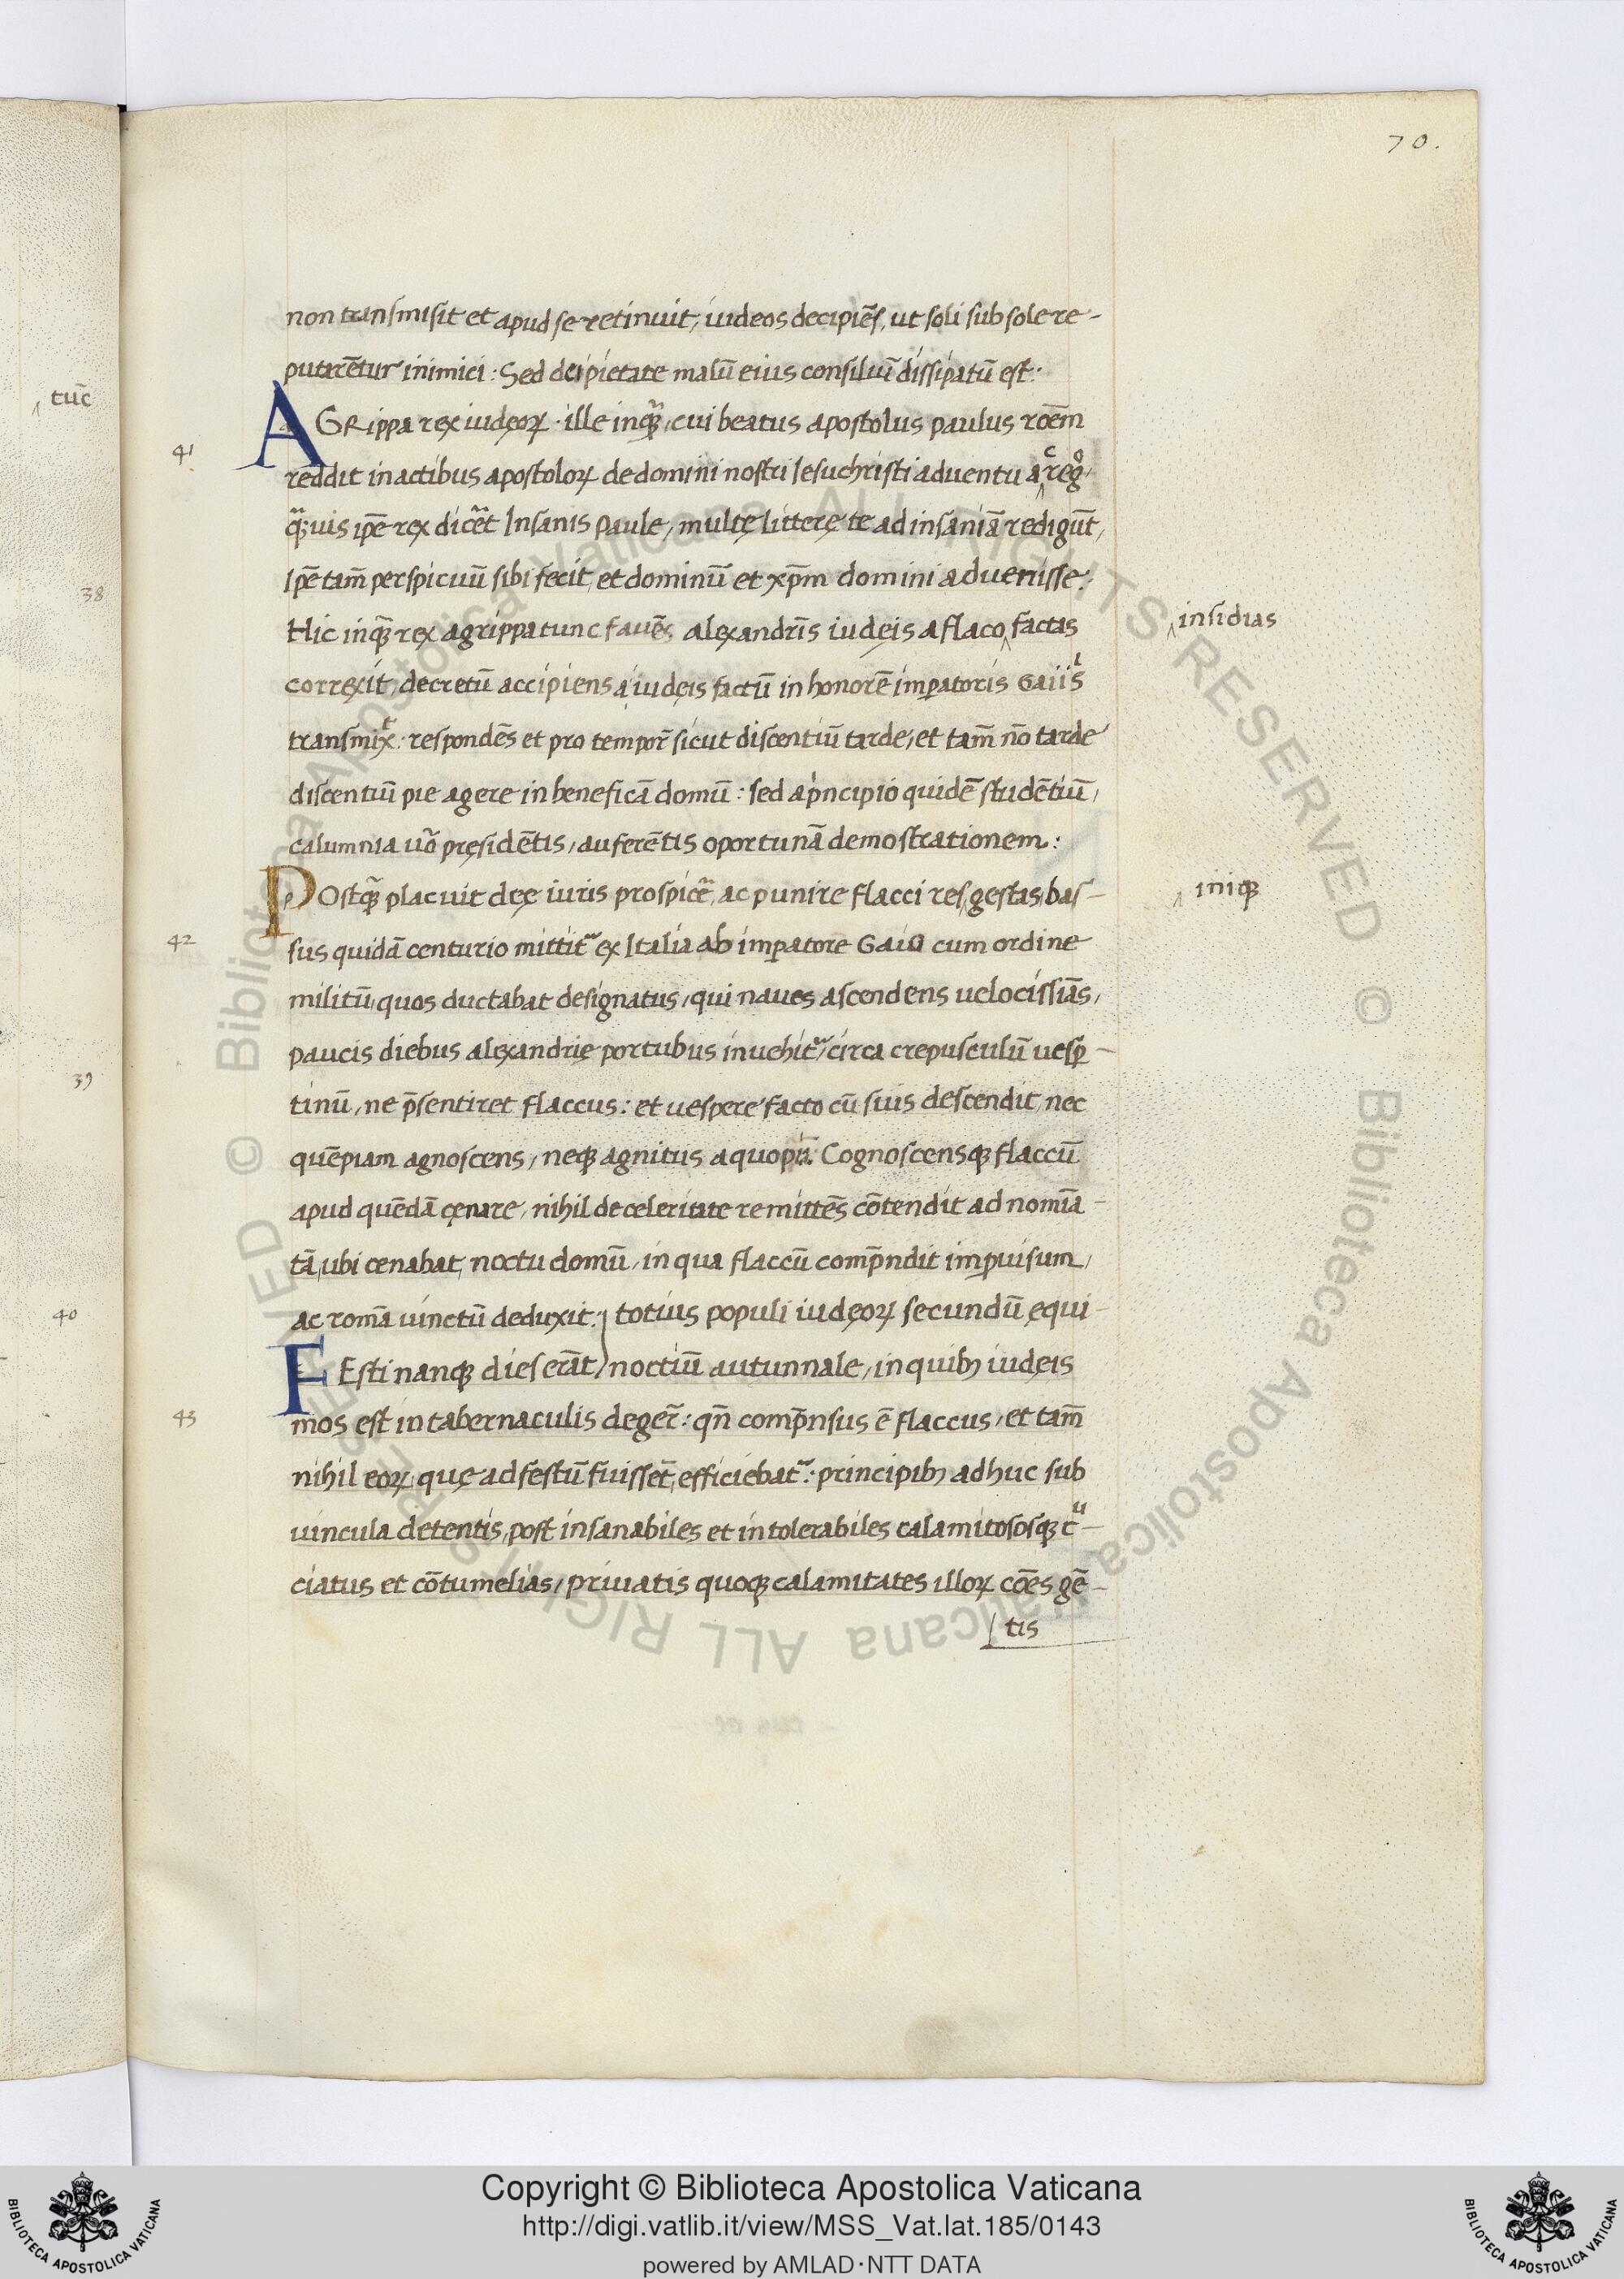 70.
non transmisit et apud se retinuit, iudeos decipiēs, ut soli sub sole re-
putarētur inimici: Sed dei pietate malū eius consiliū dissipatū est:
tūc
AGRippa rex iudęoꝝ · ille inqꝫ, cui beatus apostolus paulus roēm
41
reddit in actibus apostoloꝝ de domini nostri Iesuchristi aduentu ac regͦ,
qꝫuis ipē rex dicēt Insanis Paule, multę litterę te ad insaniā redigūt,
Ipē tam̄ perspicuū sibi fecit, et dominū et xp̄m domini aduenisse:
38
Hic inqꝫ rex agrippa tunc fauēs alexandrīs iudęis a flaco factas
insidias
correxit, decretū accipiens a iudęis factū in honorē imꝑatoris Gaii iˢ
transmix: respondēs et pro tempor̄ sicut discentiū tarde, et tam̄ nō tarde
discentiū pie agere in beneficā domū: sed a pⁱncipio quidē studētiū,
calumnia uō pręsidētis, auferētis oportunā demostrationem:
POstqꝫ placuit deę iuris prospicē, ac punire flacci res gestas, bas-
iniqꝫ
sus quidā centurio mittit ex Italia ab imꝑatore Gaio cum ordine
42
militū, quos ductabat designatus, qui naues ascendens uelocissiās,
paucis diebus alexandrię portubus inuehit, circa crepusculū uesꝑ-
39
tinū, ne p̄sentiret flaccus: et uespere facto cū suis descendit, nec
quēpiam agnoscens, neqꝫ agnitus a quopiā. Cognoscensqꝫ flaccū
apud quēdā cęnare, nihil de celeritate remittēs cōtendit ad nomīa-
tā, ubi cenabat, noctu domū, in qua flaccū comp̄ndit imꝓuisum,
ac romā uinctū deduxit: totius populi iudęoꝝ secundū ęqui-
40
FEsti nanqꝫ dies erāt, noctiū autunnale, in quibꝫ iudęis
mos est in tabernaculis deger̄: qn̄ comp̄nsus ē flaccus, et tam̄
43
nihil eoꝝ quę ad festū fuissēt, efficiebat: principibꝫ adhuc sub
uincula detentis, post insanabiles et intolerabiles calamitososqꝫ cͧ-
ciatus et cōtumelias, priuatis quoqꝫ calamitates illoꝝ cōēs gē-
tis
Copyright © Biblioteca Apostolica Vaticana
http://digi.vatlib.it/view/MSS_Vat.lat.185/0143
powered by AMLAD·NTT DATA